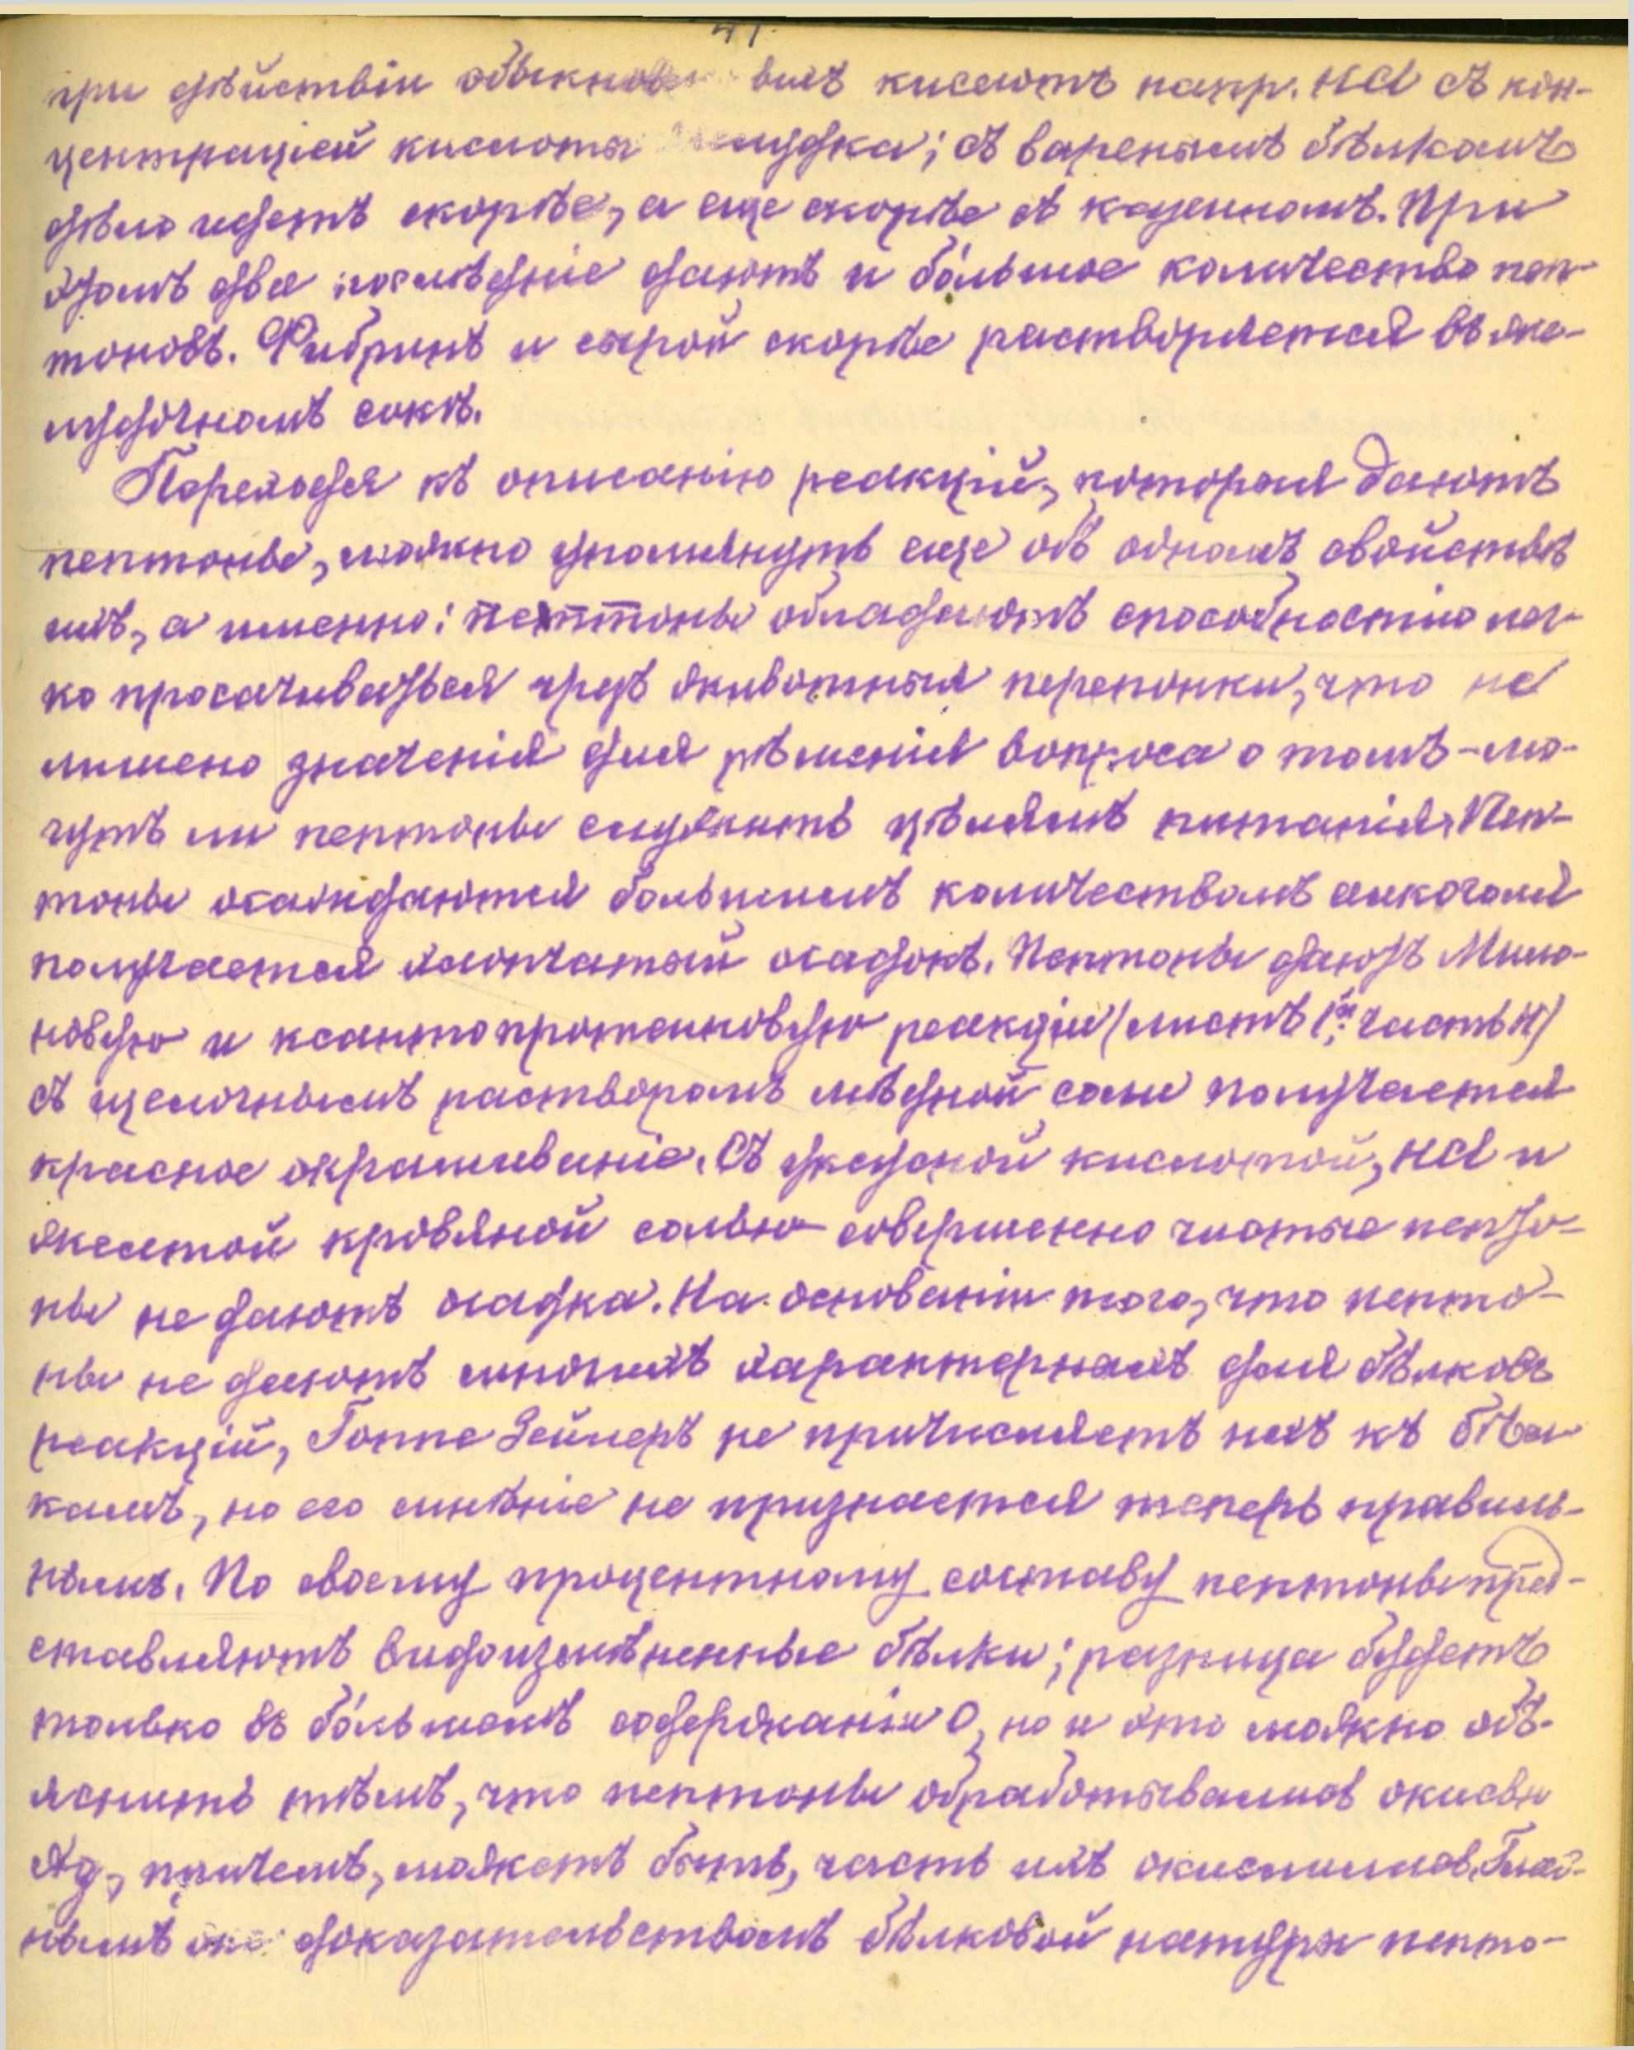 при дѣйствіи обыкновен ныхъ кислотъ напр. HCl съ кон-
центраціей кислоты желудка; съ варенымъ бѣлкомъ
дѣло идетъ скорѣе, а еще скорѣе съ казеиномъ. При
этомъ два послѣдніе даютъ и бо́льшое количество пеп-
тоновъ. Фибринъ и сырой скорѣе растворяется въ же-
лудочномъ сокѣ.
Переходя къ описанію реакцій, которыя даютъ
пептоны, можно упомянуть еще объ одномъ свойствѣ
ихъ, а именно: пептоны обладаютъ способностію лег-
ко просачиваться чрезъ животныя перепонки, что не
лишено значенія для рѣшенія вопроса о томъ - мо-
гутъ ли пептоны служить цѣлямъ питанія. Пеп-
тоны осаждаются большимъ количествомъ алкоголя
получается хлопчатый осадокъ. Пептоны даютъ Мило-
новую и ксантопротеиновую реакціи (листъ 1й, часть II)
съ щелочнымъ растворомъ мѣдной соли получается
красное окрашиваніе. Съ уксусной кислотой, HCl и
желтой кровяной солью совершенно чистые пепто-
ны не даютъ осадка. На основаніи того, что пепто-
ны не даютъ многихъ характерныхъ для бѣлковъ
реакцій, Гоппе Зейлеръ не причисляетъ ихъ къ бѣл-
камъ, но его мнѣніе не признается теперь правиль-
нымъ. По своему процентному составу пептоны пред-
ставляютъ видоизмѣненные бѣлки; разница будетъ
только въ бо́льшемъ содержаніи О, но и это можно объ-
яснить тѣмъ, что пептоны обрабатывались окисью
Ag, причемъ, можетъ быть, часть ихъ окислилась. Глав-
нымъ же доказательствомъ бѣлковой натуры пепто-